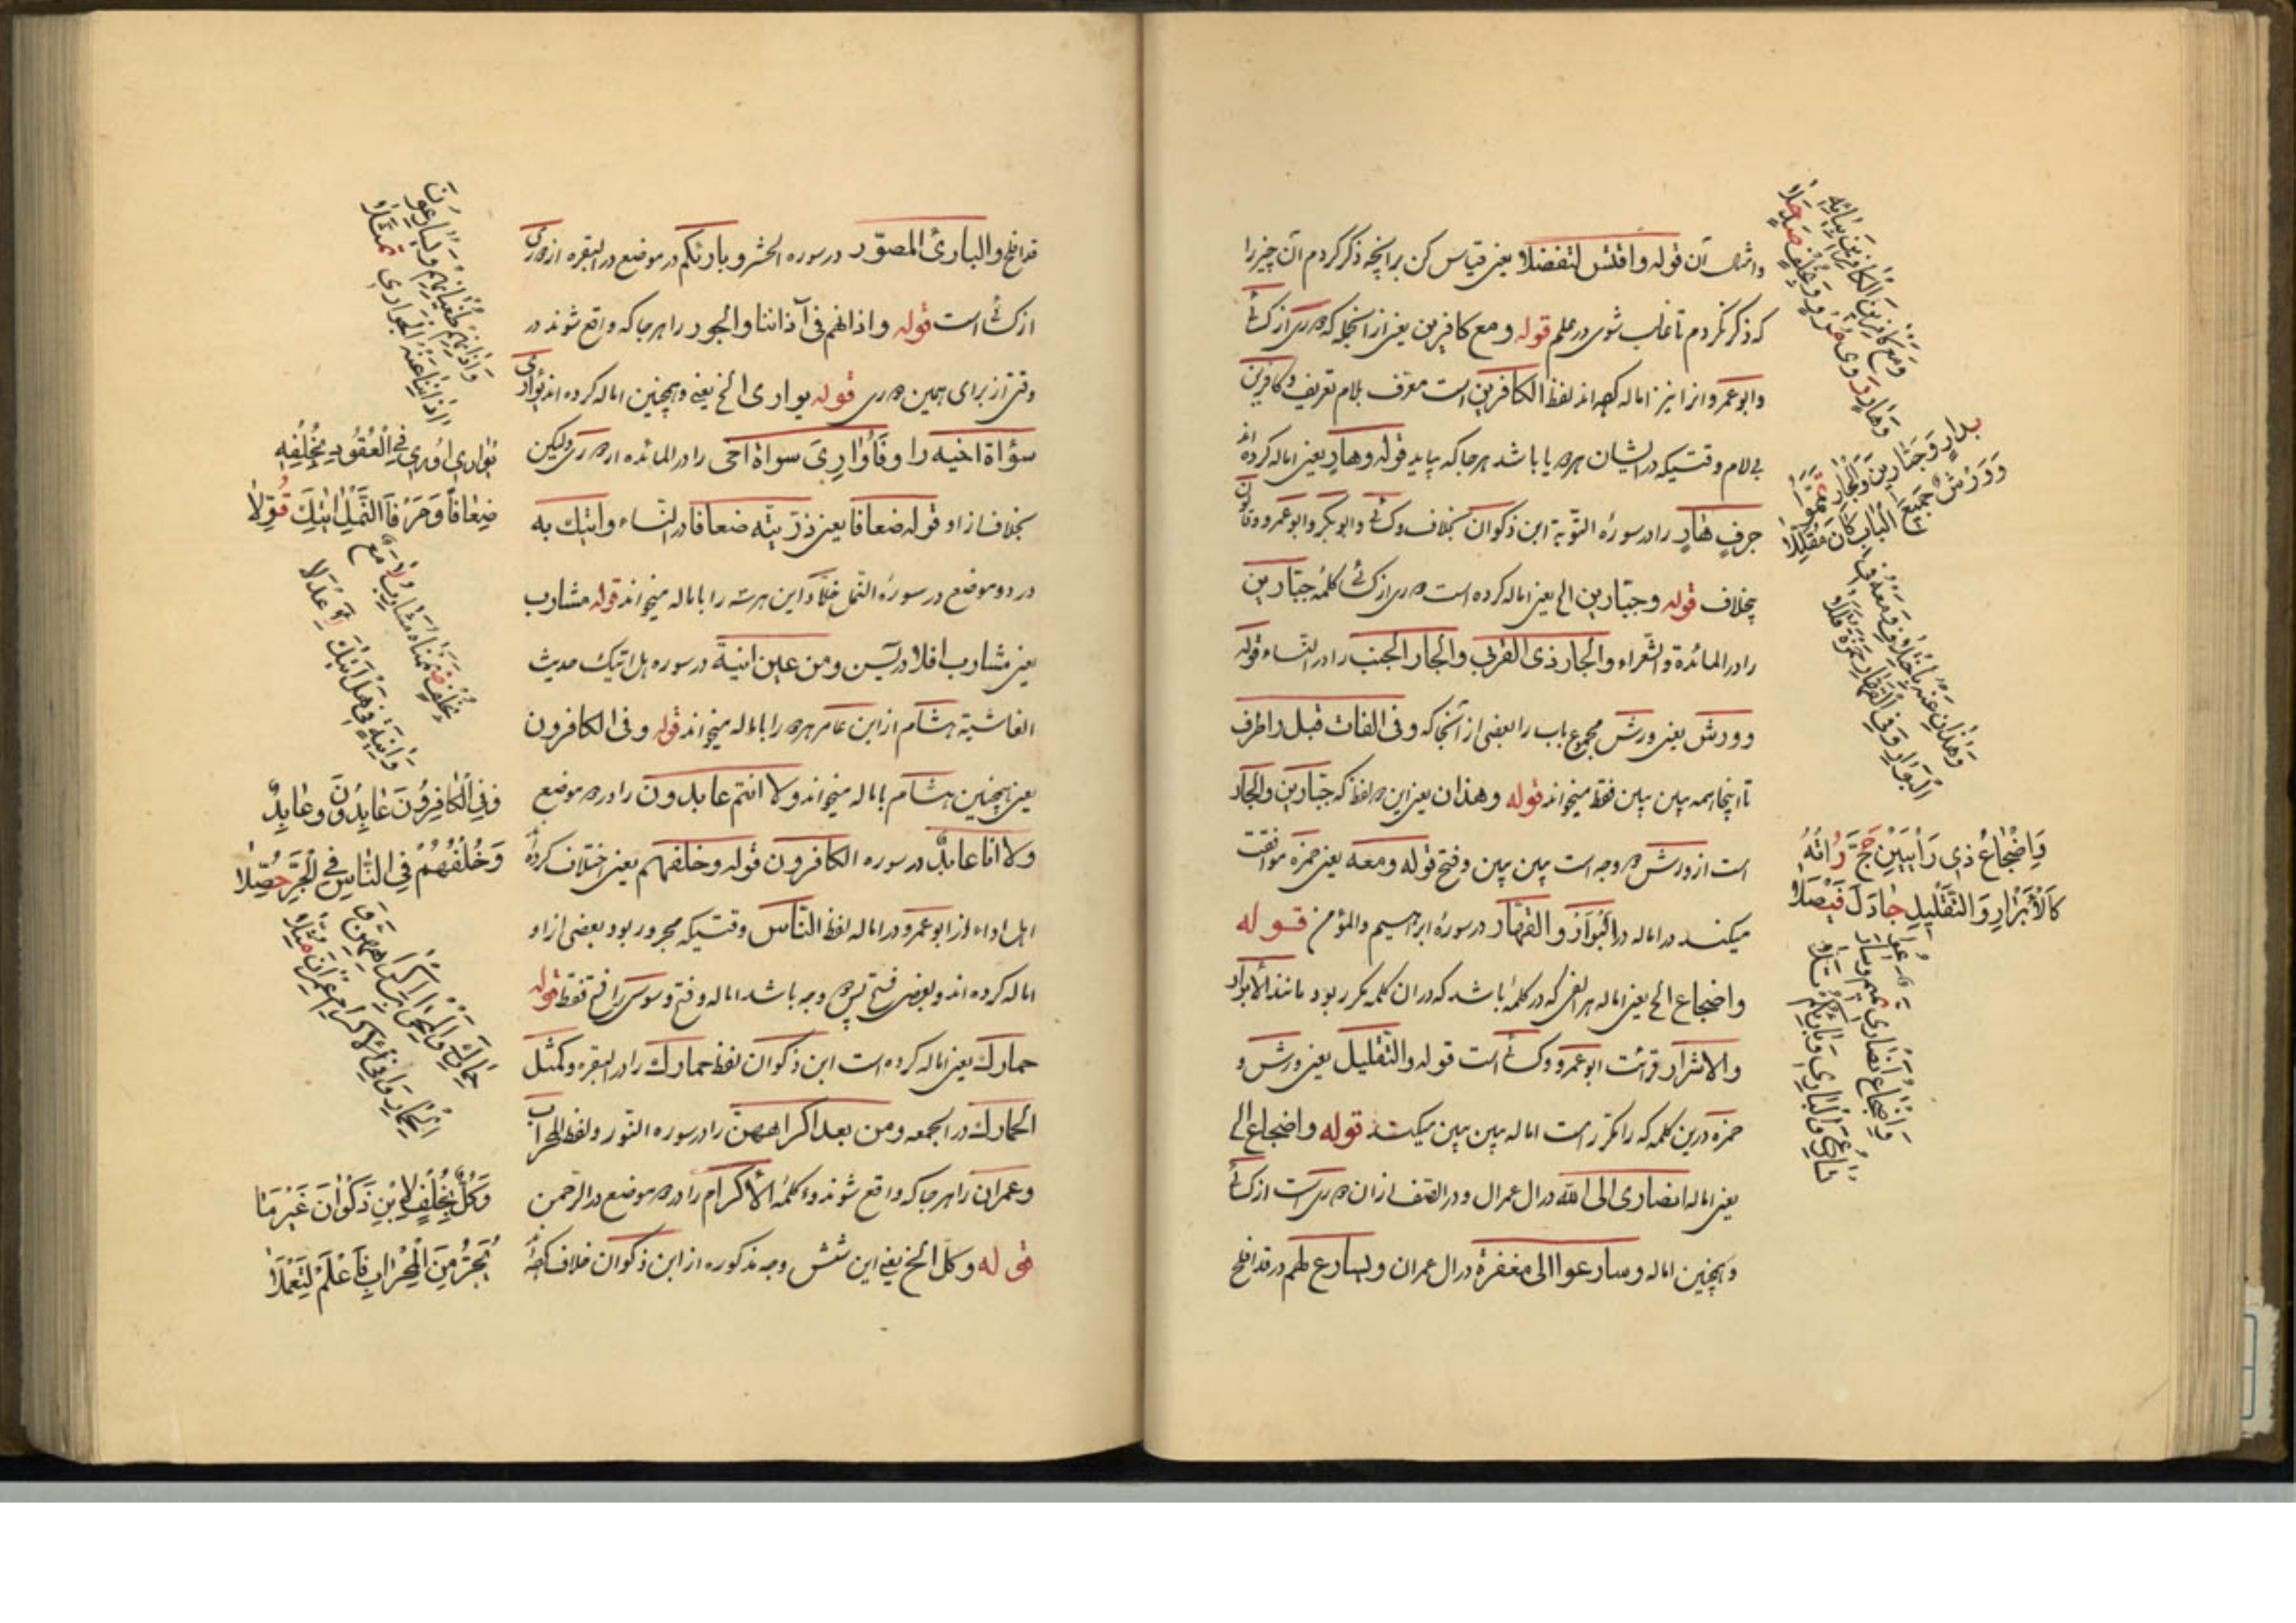 وامثال آن قوله واقتس لتفضلا یعنی قیاس کن برآنچه ذکر کردم آن چیز را
که ذکر نکردم تا غالب شوی در علم قوله ومع کافرین یعنی از آنجمله که دوری از کسائی
وابوعمرو انرا نیز اماله کرده اند لفظ الکافرین است معرف بلام تعریف وکافرین
بی لام وقتیکه در ایشان هر دو یا باشد هر جا که بیاید قوله وهار یعنی اماله کرده اند
جرف هار را در سورهٔ التوبة ابن ذکوان بخلاف وکسائی وابوبکر وابوعمرو وقالون
بخلاف قوله وجبارین الخ یعنی اماله کرده است دوری از کسائی کلمهٔ جبارین
را در المائدة والشعراء والجار ذی القربی والجار الجنب را در النساء قوله
وورش یعنی ورش مجموع باب را یعنی از آنجا که وفی الفات قبل راطرف
تا اینجا همه بین بین فقط میخواند قوله وهذان یعنی این دو لفظ که جبارین والجار
است از ورش دو وجه است بین بین وفتح قوله ومعه یعنی حمزه موافقت
میکند در اماله در البوار والقهار در سورهٔ ابرهیم والمؤمن قوله
واضجاع الخ یعنی اماله هر الفی که در کلمهٔ باشد که در ان کلمه مکرر بود مانند الابرار
والاشرار قرائت ابوعمرو وکسائی است قوله والتقلیل یعنی ورش و
حمزه درین کلمه که را مکرر است اماله بین بین میکنند قوله واضجاع الخ
یعنی اماله انصاری الی الله در ال عمران ودر الصف از ان دوری است از کسائی
وهمچنین اماله وسارعوا الی مغفرة در ال عمران ونسارع لهم در قد افلح
ومع کافرین الکافرین بیائه
وهار روی مرو بخلف صد حلا
بدار وجبارین والجار تمموا
وورش جمیع الباب کان مقللا
وهذان عنه باختلاف ومعه فی
البوار وفی القهار حمزة قللا
وَاِضْجَاعُ ذِی رَاءَیْنِ حَجَّ رُوَاتُهُ
کَالْاَبْرَارِ وَالتَّقْلِیلِ جَادَلَ فَیْصَلَا
واضجاع انصاری تمیم وسارعوا
نسارع والباری وبارئکم تلا
قد افلح والبارئ المصور در سوره الحشر وبارئکم در موضع در البقره از دوری
از کسائی است قوله واذانهم فی آذاننا والجوار را هر جا که واقع شوند در
وقتی از برای همین دوری قوله یواری الخ یعنی وهمچنین اماله کرده اند یواری
سؤاة اخیه را وفاواری سواة اخی را در المائده از دوری ولیکن
بخلاف از او قوله ضعافا یعنی ذریة ضعافا در النساء واتیک به
در دو موضع در سورهٔ النمل خلاد این هر سه را باماله میخواند قوله مشارب
یعنی مشارب افلا در یس ومن عین انیة در سوره هل اتیک حدیث
الغاشیة هشام از ابن عامر هر دو را باماله میخواند قوله وفی الکافرون
یعنی همچنین هشام باماله میخواند ولا انتم عابدون را در دو موضع
ولا انا عابد در سوره الکافرون قوله وخلفهم یعنی اختلاف کرده
اهل اداء از ابوعمرو در اماله لفظ الناس وقتیکه مجرور بود بعضی از او
اماله کرده اند وبعضی فتح پس دو وجه باشد اماله وفتح وسوسی را فتح فقط قوله
حمارک یعنی اماله کرده است ابن ذکوان لفظ حمارک را در البقره وکمثل
الحمار در الجمعه ومن بعد اکراههن را در سوره النور ولفظ المحراب
وعمران را هر جا که واقع شوند وکلمهٔ الاکرام را در دو موضع در الرحمن
قوله وکل الخ یعنی این شش وجه مذکوره از ابن ذکوان خلاف کرده
واذانهم طغیانهم ویسارعون
اذاننا عنه الجواری تمثلا
یُوَارِی اُوَارِی فِی الْعُقُودِ بِخُلْفِهِ
ضِعَافاً وَحَرْفَا النَّمْلِ اٰتِیكَ قُوِّلَا
بخلف ضممناه مشارب لامع
وانیة فی هل اتیك لاعدلا
وَفِی الْکَافِرُونَ عَابِدُونَ وَعَابِدٌ
وَخُلْفُهُمْ فِی النَّاسِ فِی الْجَرِّ حُصِّلَا
حمارك والمحراب اکراههن و
الحمار وفی الاکرام عمران مثلا
وَکُلٌّ بِخُلْفٍ لِابْنِ ذَکْوَانَ غَیْرَ مَا
یُجَرُّ مِنَ الْمِحْرَابِ فَاعْلَمْ لِتَعْمَلَا